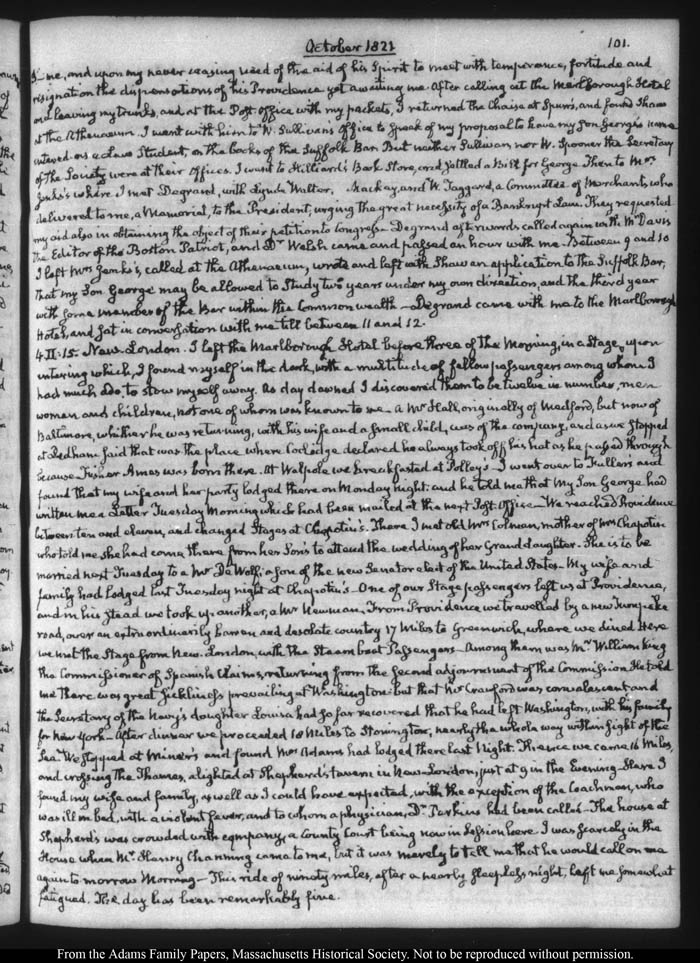 October 1821
101.
to me, and upon my never ceasing need of the aid of his Spirit to meet with temperance, fortitude and
resignation the dispensations of his Providence yet awaiting me. After calling at the Marlborough Hotel
and leaving my trunks, and at the Post-office with my packets, I returned the Chaise at Spurr's, and found Shaw
at the Athenaeum. I went with him to W. Sullivan's Office to speak of my proposal to have my Son George's name
entered as a Law Student, on the books of the Suffolk Bar. But neither Sullivan, nor W. Spooner the Secretary
of the Society were at their Offices. I went to Hilliard's Book Store, and settled a Bill for George. Then to Mrs
Jenks's where I met Degrand, with Lynde Walter, Mackay, and W. Taggard, a Committee of Merchants, who
delivered to me, a Memorial, to the President, urging the great necessity of a Bankrupt Law. They requested
my aid also in obtaining the object of their petition to Congress. Degrand afterwards called again with Mr Davis
the Editor of the Boston Patriot, and Dr Welsh came and passed an hour with me. Between 9 and 10
I left Mrs Jenks's, called at the Athenaeum, wrote and left with Shaw an application to the Suffolk Bar,
that my Son George may be allowed to Study two years under my own direction, and the third year
with some member of the Bar within the Commonwealth—Degrand came with me to the Marlborough
Hotel, and sat in conversation with me till between 11 and 12.
4. II:15. New-London. I left the Marlborough Hotel before three of the Morning, in a Stage, upon
entering which, I found myself in the dark, with a multitude of fellow passengers among whom I
had much ado, to stow myself away. As day dawned I discovered them to be twelve in number, men
women and children, not one of whom was known to me. A Mr Hall, originally of Medford, but now of
Baltimore, whither he was returning, with his wife and a small child, was of the company, and as we stopped
at Dedham said that was the place where Coolidge declared he always took off his hat as he passed through
because Fisher Ames was born there. At Walpole we breakfasted at Polley's. I went over to Fuller's and
found that my wife and her party lodged there on Monday night: and he told me that my Son George had
written me a Letter Tuesday Morning which had been mailed at the next Post-Office—We reached Providence
between ten and eleven, and changed Stages at Chapotin's. There I met old Mrs Colman, mother of Mrs Chapotin
who told me she had come there from her Son's to attend the wedding of her Grand daughter. She is to be
married next Tuesday to a Mr De Wolf; a Son of the new Senator elect of the United States. My wife and
family had lodged last Tuesday night at Chapotin's. One of our Stage passengers left us at Providence,
and in his stead we took up another, a Mr Newman. From Providence we travelled by a new turnpike
road, over an extraordinarily barren and desolate country 17 Miles to Greenwich, where we dined. Here
we met the Stage from New-London, with the Steam boat Passengers—Among them was Mr William King
the Commissioner of Spanish Claims, returning from the second adjournment of the Commission. He told
me there was great sickliness prevailing at Washington: but that Mr Crawford was convalescent and
the Secretary of the Navy's daughter Louisa had so far recovered that he had left Washington, with his family
for New York—After dinner we proceeded 18 Miles to Stonington, nearly the whole way within sight of the
Sea. We stopped at Miner's and found Mrs Adams had lodged there last Night. Thence we came 16 Miles,
and crossing the Thames, alighted at Shepherd's tavern in New-London, just at 9 in the Evening. Here I
found my wife and family, as well as I could have expected, with the exception of the Coachman, who
was ill in bed, with a violent fever, and to whom a physician, Dr Perkins had been called—The house at
Shepherd's was crowded with company, a County Court being now in Session here. I was scarcely in the
House when Mr Henry Channing came to me, but it was merely to tell me that he would call on me
again to morrow Morning—This ride of ninety miles, after a nearly sleepless night, left me somewhat
fatigued. The day has been remarkably fine.
From the Adams Family Papers, Massachusetts Historical Society. Not to be reproduced without permission.